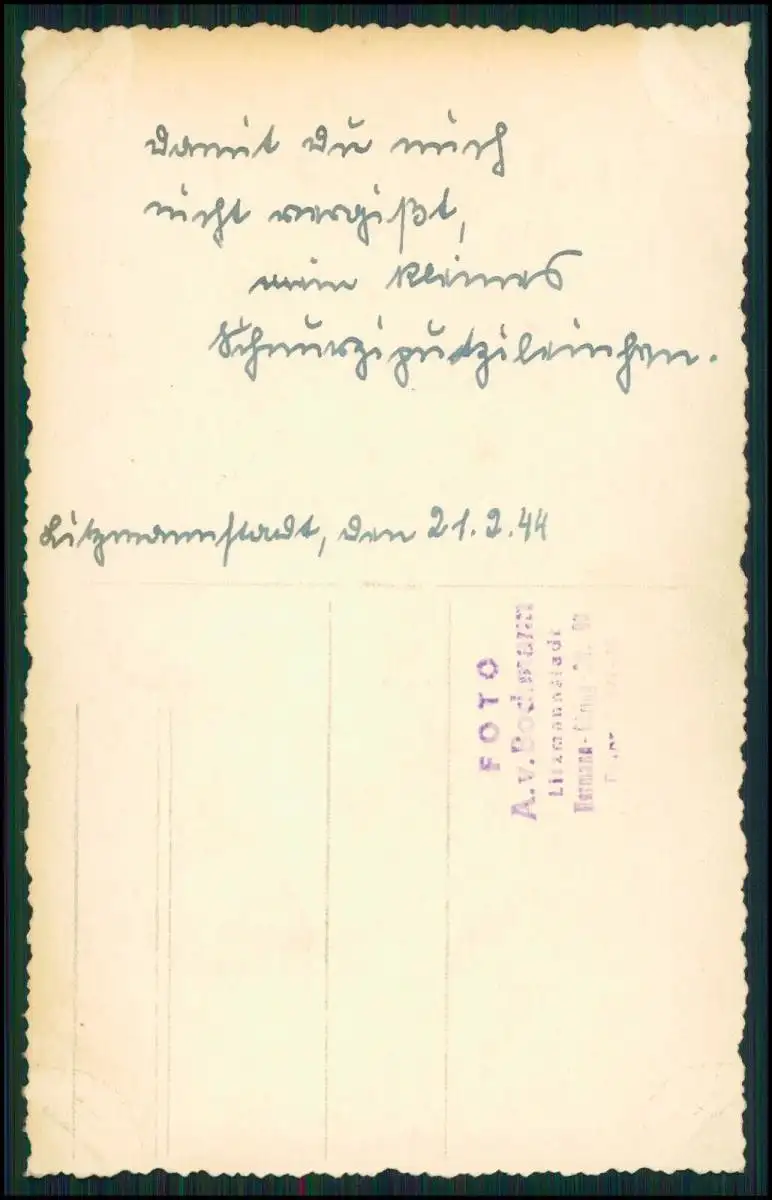 damit du mich
nicht vergißt,
mein kleines
Schnurziputzileinchen.
Litzmannstadt, den 21.2.44
FOTO
A.v.Bochmann
Litzmannstadt
Hermann-Göring-